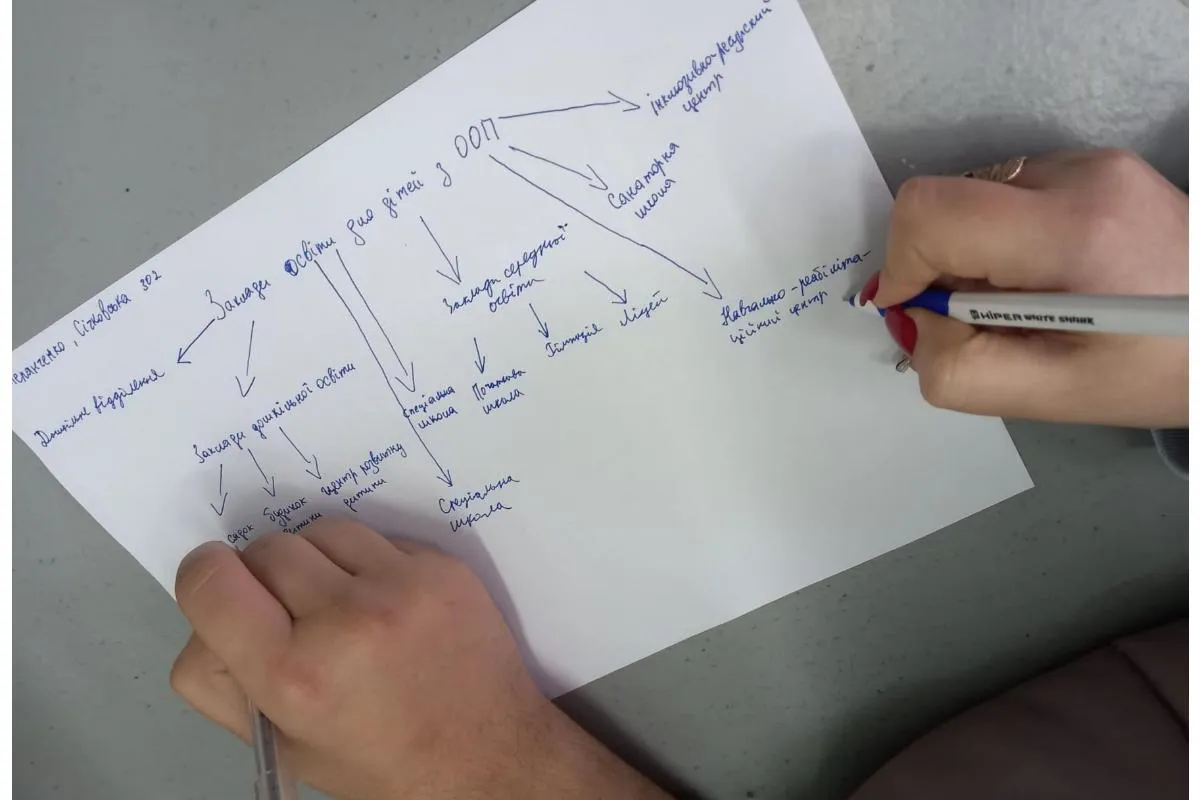 Січковська 302
Заклади освіти для дітей з ООП
інклюзивно-ресурсний
центр
Санаторна
школа
Навчально-реабіліта-
ційний центр
Заклади середньої
освіти
Ліцей
Гімназія
Початкова
школа
Спеціальна
школа
Спеціальна
школа
Дошкільне відділення
Заклади дошкільної освіти
центр розвитку
дитини
будинок
дитини
садок
HIPER WHITE SHARK